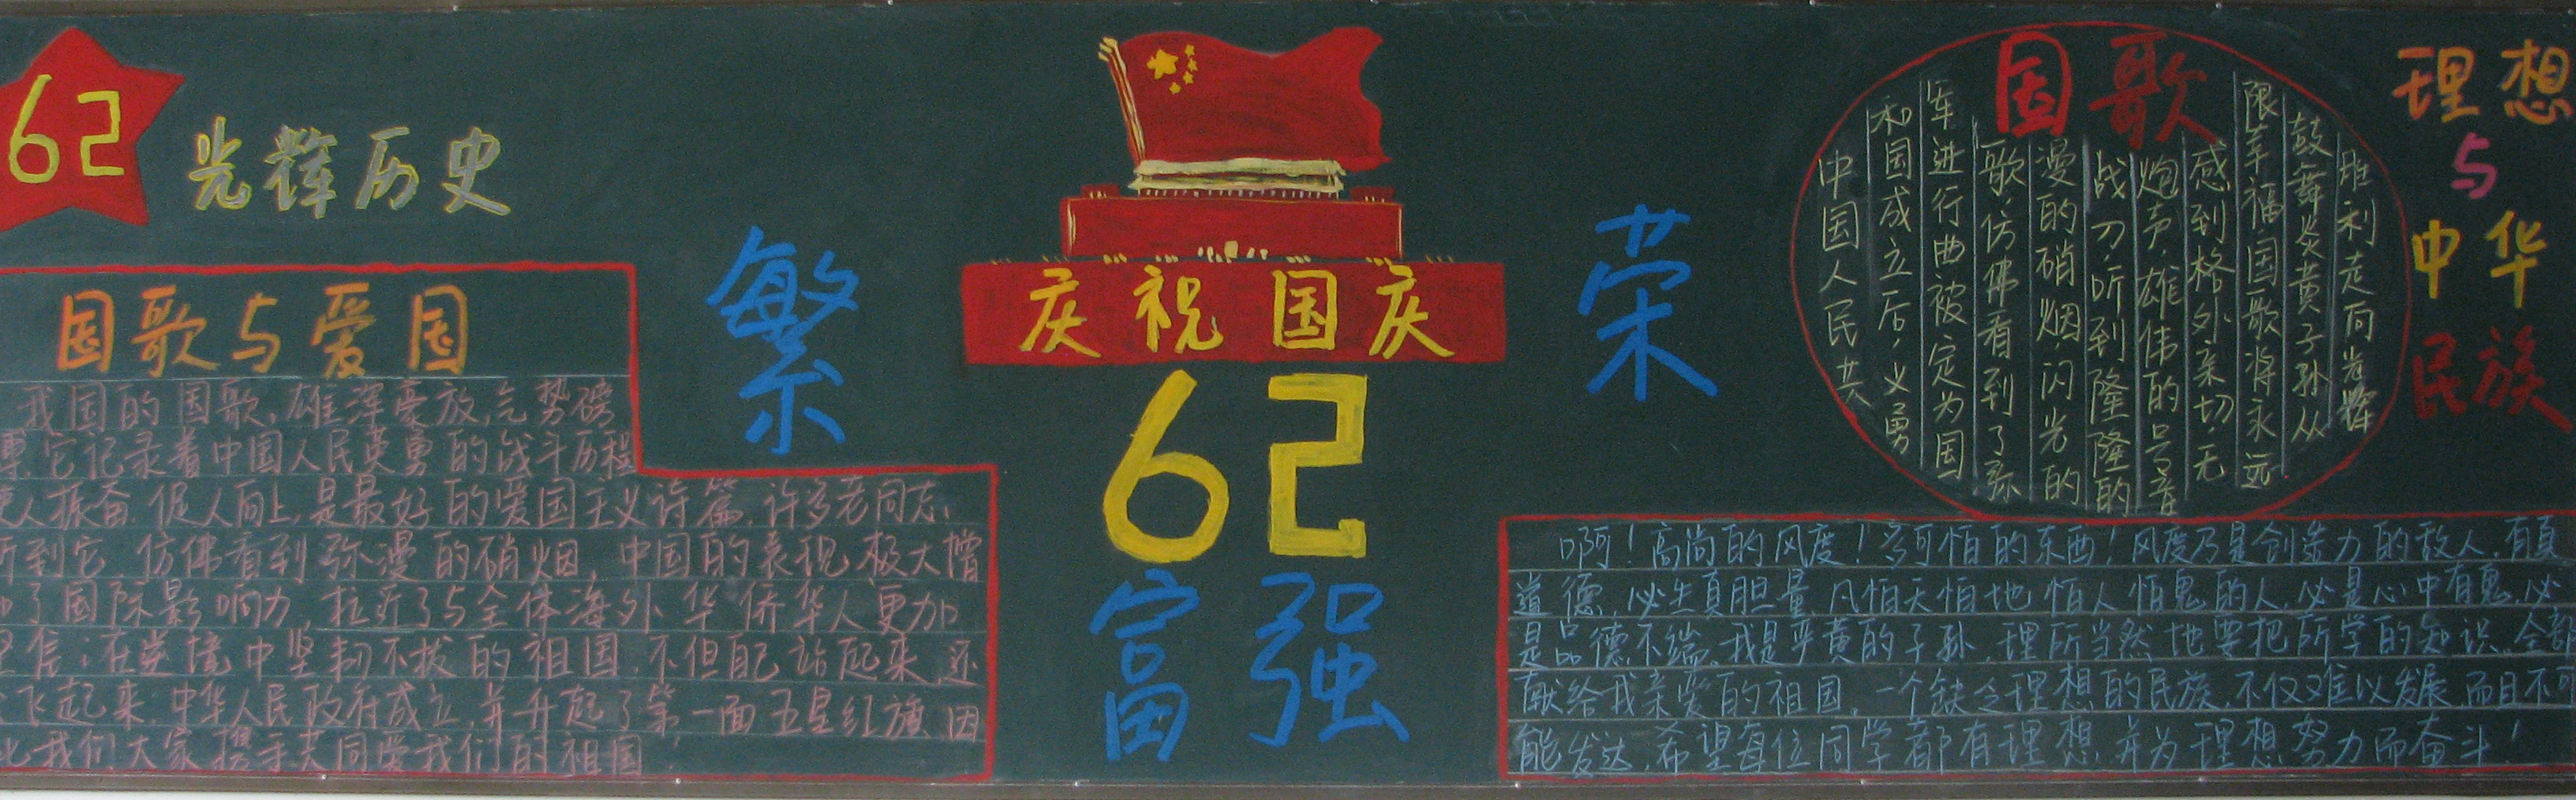 62
光辉历史
国歌与爱国
我国的国歌,雄浑豪放,气势磅
它记录着中国人民英勇的战斗历程
人振奋,促人向上,是最好的爱国主义诗篇,许多老同志
听到它,仿佛看到弥漫的硝烟,中国的表现极大增
了国际影响力,拉近了与全体海外华侨华人更加
信:在逆境中坚韧不拔的祖国,不但自己站起来,还
飞起来,中华人民政府成立,并升起了第一面五星红旗,因
此我们大家携手共同爱我们的祖国!
繁
荣
庆祝国庆
62
富强
国歌
中国人民共
和国成立后,义勇
军进行曲被定为国
歌,仿佛看到了弥
漫的硝烟闪光的
战刀,听到隆隆的
炮声,雄伟的号音
感到格外亲切,无
限幸福国歌将永远
鼓舞炎黄子孙从
胜利走向光辉
理想
与
中华
民族
啊!高尚的风度!多可怕的东西!风度乃是创造力的敌人,有真
道德,必生真胆量,凡怕天怕地怕人怕鬼的人,必是心中有鬼,必
是品德不端。我是严黄的子孙,理所当然地要把所学的知识,全部
献给我亲爱的祖国。一个缺乏理想的民族,不仅难以发展,而且不可
能发达,希望每位同学都有理想,并为理想努力而奋斗!